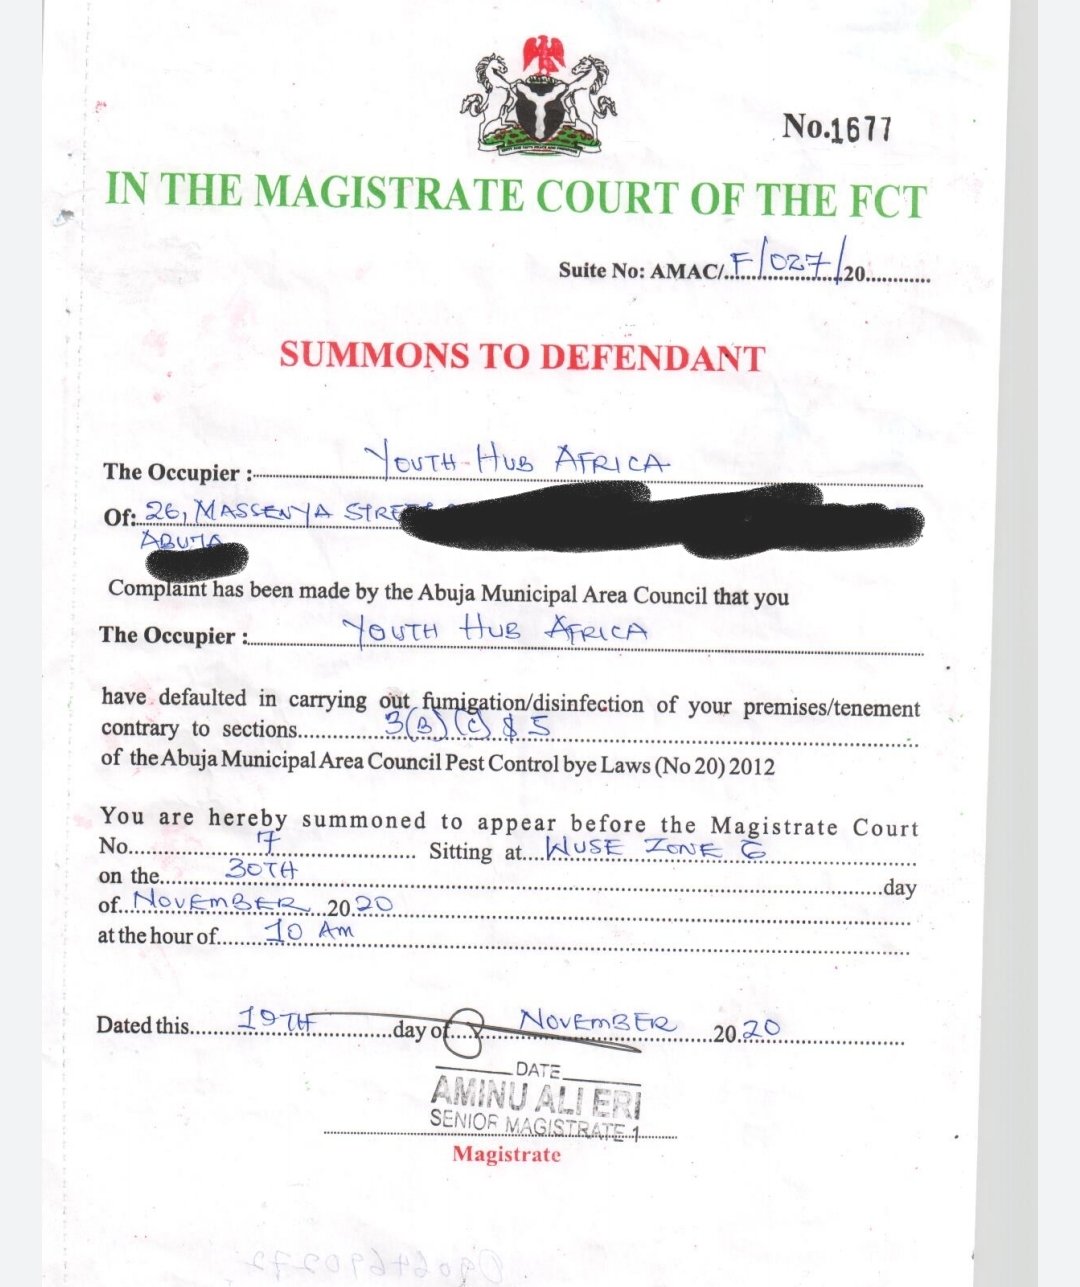 No.1677
IN THE MAGISTRATE COURT OF THE FCT
Suite No: AMAC/...F/027/20............
SUMMONS TO DEFENDANT
The Occupier : YOUTH HUB AFRICA
Of: 26, MASSENYA
ABUJA
Complaint has been made by the Abuja Municipal Area Council that you
The Occupier : YOUTH HUB AFRICA
have defaulted in carrying out fumigation/disinfection of your premises/tenement
contrary to sections 3(B) (C) $ 5
of the Abuja Municipal Area Council Pest Control bye Laws (No 20) 2012
You are hereby summoned to appear before the Magistrate Court
No. 7 Sitting at WUSE ZONE 6
on the 30TH day
of NOVEMBER 2020
at the hour of 10 AM
Dated this 19TH day of NOVEMBER 2020
DATE
AMINU ALI ERI
SENIOR MAGISTRATE 1
Magistrate